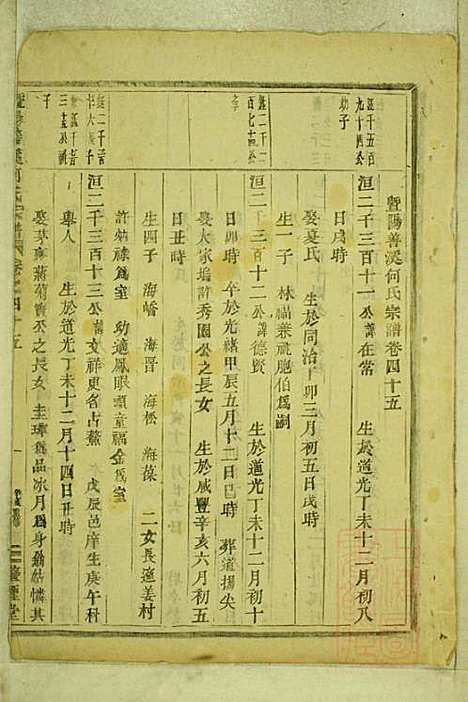 暨陽善溪何氏宗譜卷四十五
洹二千三百十一公諱在常 生於道光丁未十二月初八
日戌時
娶夏氏 生於同治丁卯三月初五日戌時
生一子 林福兼祧胞伯為嗣
洹二千三百十二公諱德賢 生於道光丁未十二月初十
日卯時 卒於光緒甲辰五月十二日巳時 葬道揚尖
娶大家塢許秀園公之長女 生於咸豐辛亥六月初五
日丑時
生四子 海嶓 海晋 海松 海葆 二女長適姜村
許炳祿為室 幼適鳳眼頭童福金為室
洹二千三百十三公諱文祥東名占鰲 戊辰邑庠生庚午科
舉人 生於道光丁未十二月十四日丑時
娶茅蔣菊賓公之長女 圭璋為品冰月為身翁姑憐其
洹千五百
九十四公
幼子
洹二千二
百七十公
洹二千
子